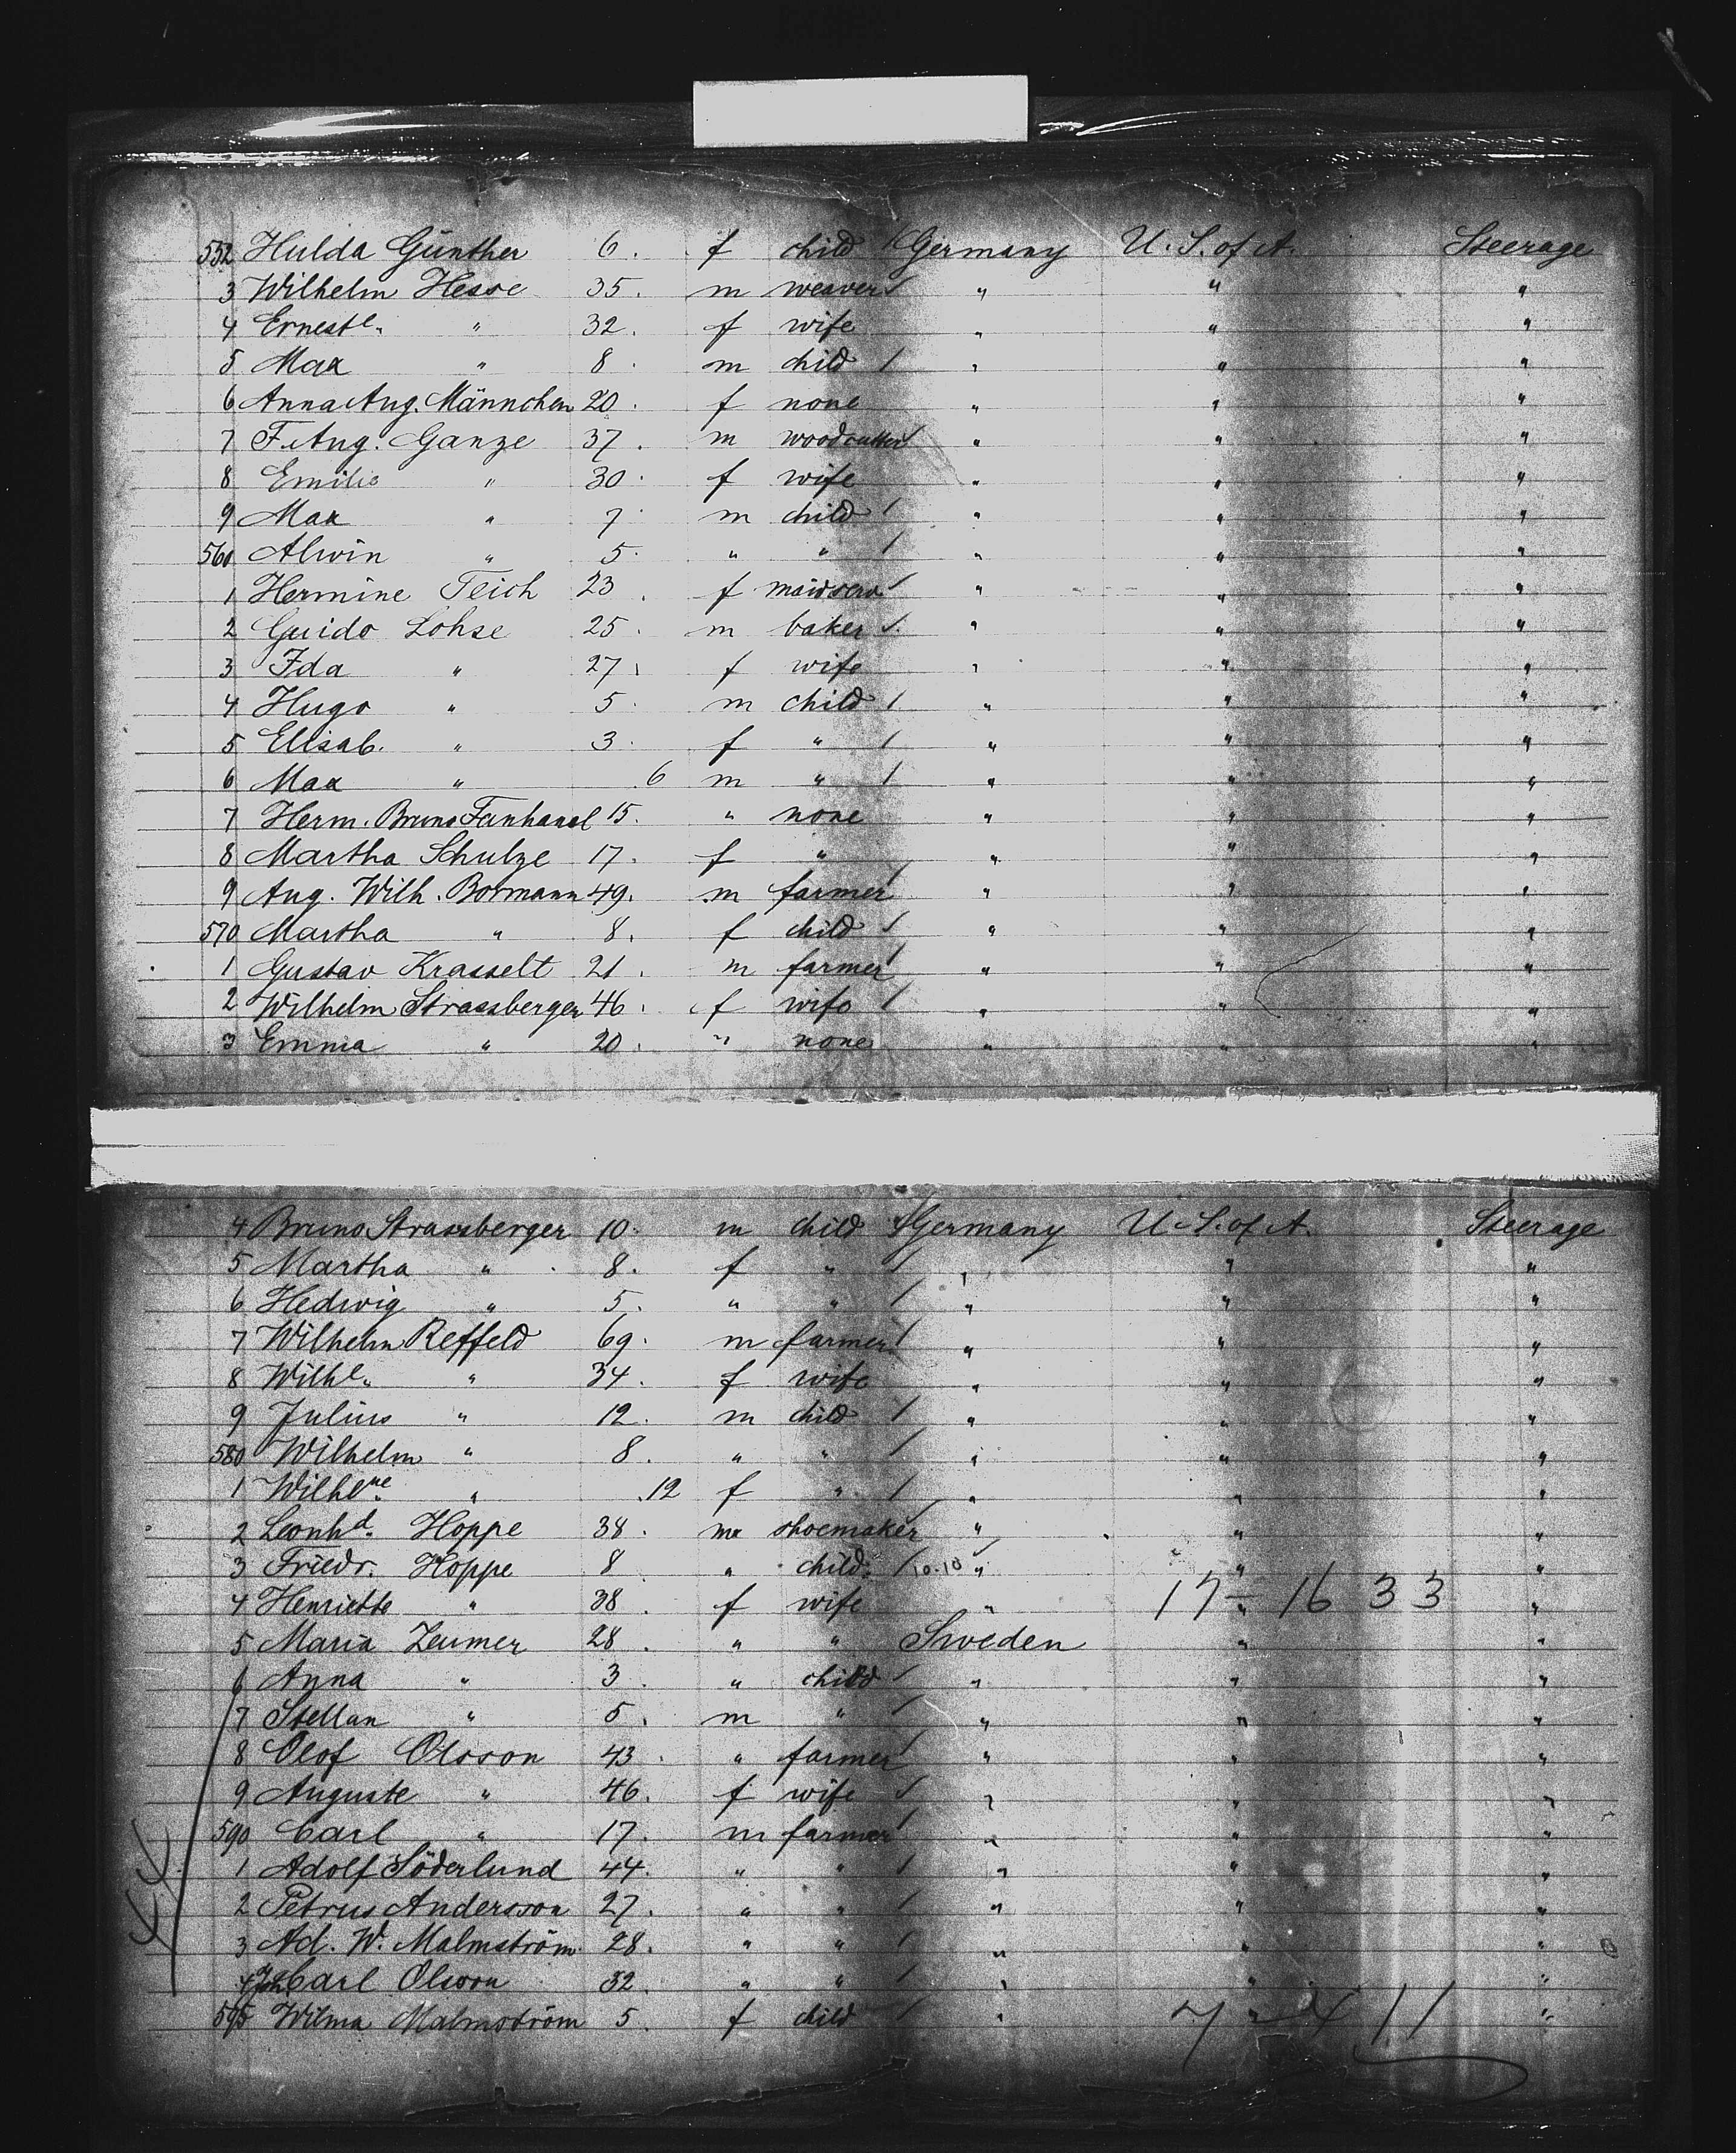 552 Hulda Günther 6. f child Germany U. S. of A. Steerage
3 Wilhelm Hesse 35. m weaver " " "
4 Ernestᵉ. " 32. f wife " " "
5 Max " 8. m child " " "
6 Anna Aug. Männchen 20. f none " " "
7 F. Aug. Ganze 37. m woodcutter " " "
8 Emilie " 30. f wife " " "
9 Max " 7. m child " " "
560 Alwin " 5. " " " " "
1 Hermine Teich 23. f maidserv. " " "
2 Guido Lohse 25. m baker " " "
3 Ida " 27. f wife " " "
4 Hugo " 5. m child " " "
5 Elisab. " 3. f " " " "
6 Max " .6 m " " " "
7 Herm. Bruno Fanhanel 15. " none " " "
8 Martha Schulze 17. f " " " "
9 Aug. Wilh. Bormann 49. m farmer " " "
570 Martha " 8. f child " " "
1 Gustav Krasselt 21. m farmer " " "
2 Wilhelm Strassberger 46. f wife " " "
3 Emma " 20. " none " " "
4 Bruno Strassberger 10. m child Germany U. S. of A. Steerage
5 Martha " 8. f " " " "
6 Hedwig " 5. " " " " "
7 Wilhelm Reffeld 69. m farmer " " "
8 Wilhᵉ. " 34. f wife " " "
9 Julius " 12. m child " " "
580 Wilhelm " 8. " " " " "
1 Wilhᵐᵉ " .12 f " " " "
2 Leonhᵈ. Hoppe 38. m shoemaker " " "
3 Friedr. Hoppe 8 " child 10-10 " " "
4 Henriette " 38. f wife " 17 - 16 33 " "
5 Maria Zeumer 28. " " Sweden " "
6 Anna " 3. " child " " "
7 Stellan " 5. m " " " "
8 Olof Olsson 43. " farmer " " "
9 Auguste " 46. f wife " " "
590 Carl " 17. m farmer " " "
1 Adolf Söderlund 44. " " " " "
2 Petrus Andersson 27. " " " " "
3 Ad. W. Malmström 28. " " " " "
4 Joh Carl Olsson 32 " " " " "
595 Wilma Malmström 5. f child " 7 - 4 11 "